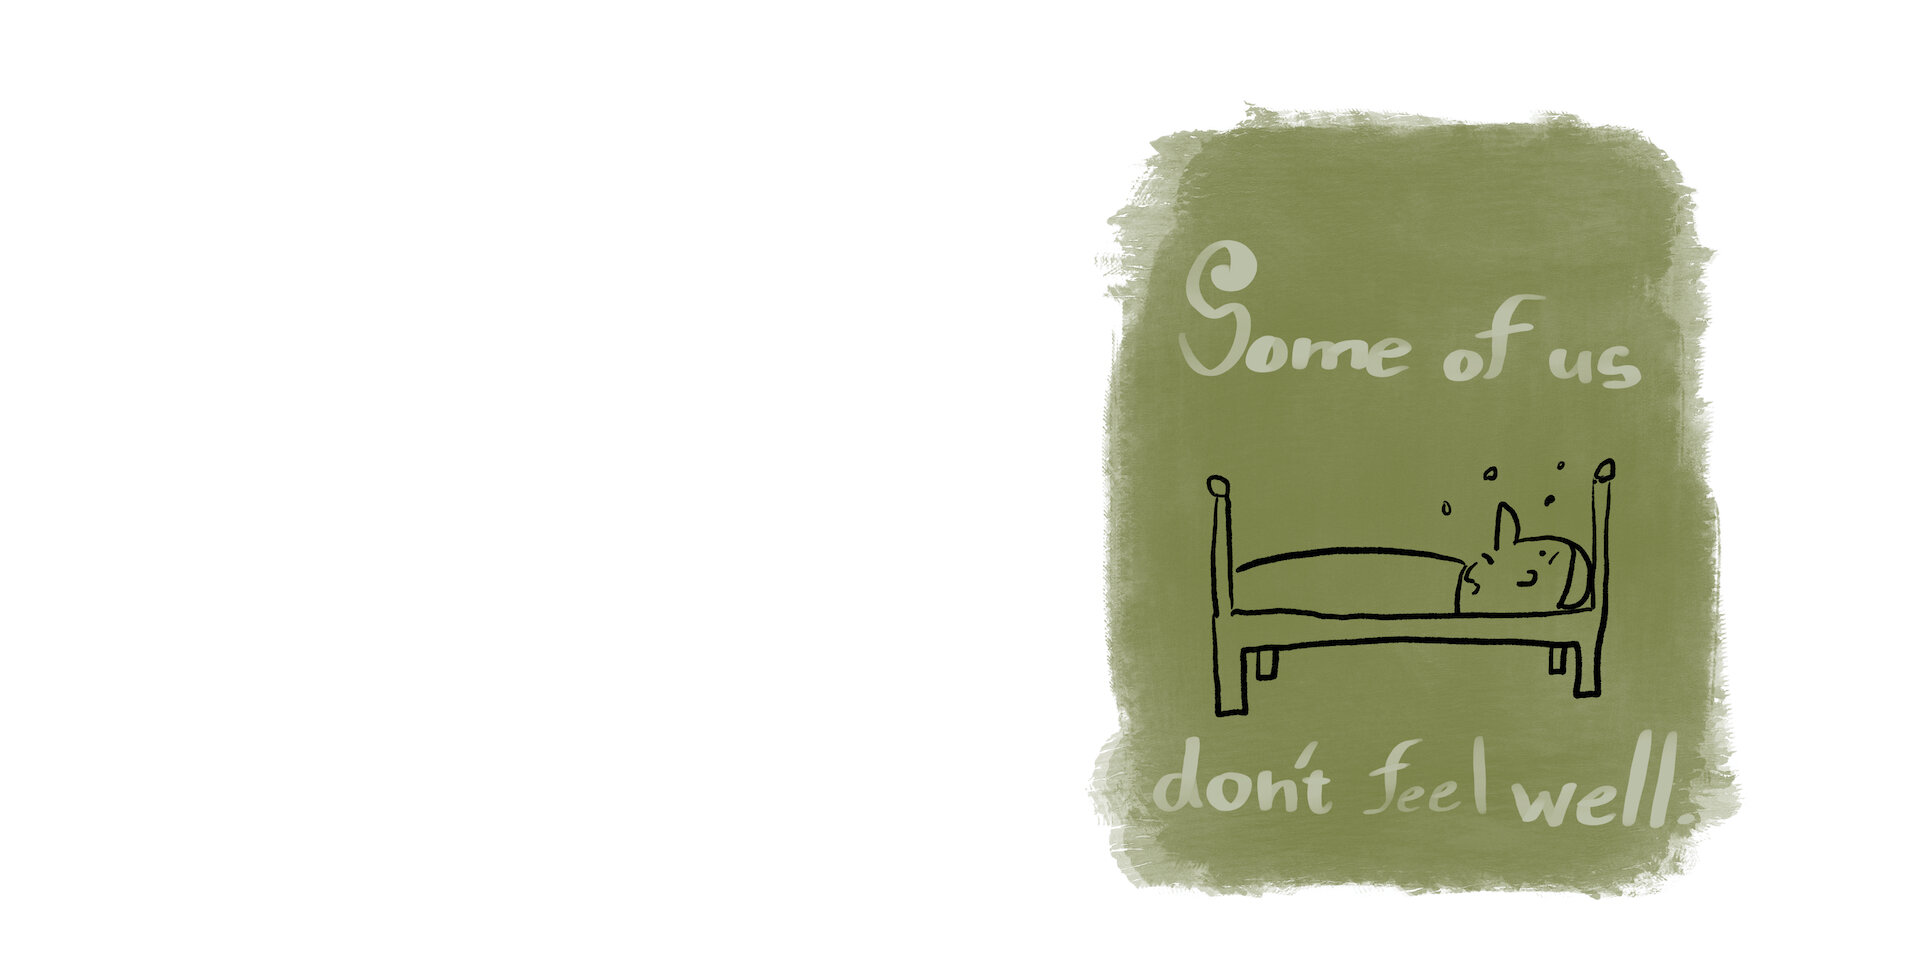 Some of us
don't feel well.